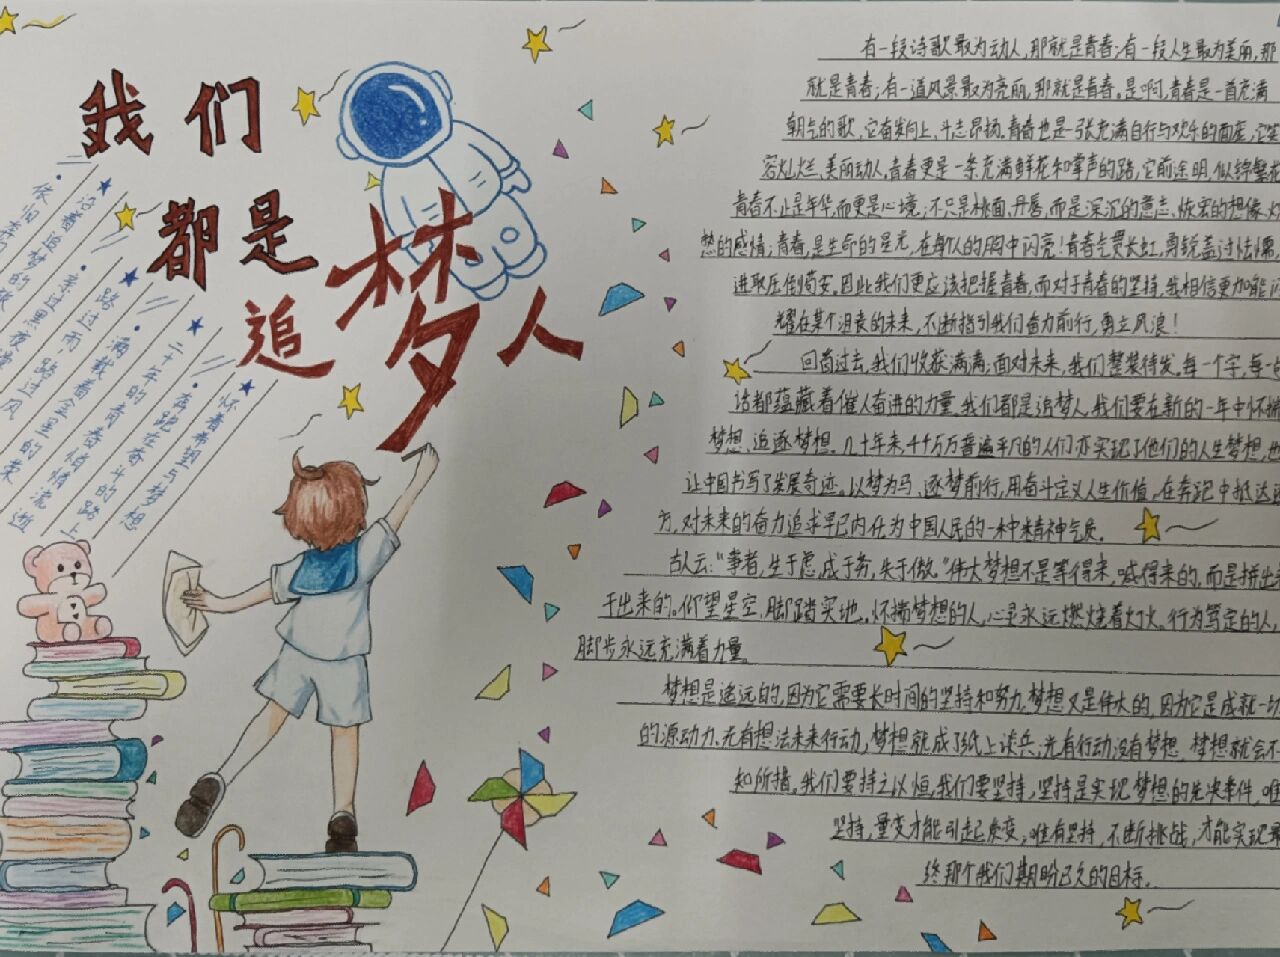 我们
都是
追梦人
怀着希望与梦想
奔跑在奋斗的路上
二十年的青春悄悄流逝
满载着金黑的荣
路过雨,路过风
走过黑夜漫
沿着追梦的
依旧
有一段诗歌最为动人,那就是青春;有一段人生最为美丽,那
就是青春;有一道风景最为亮丽,那就是青春。是啊,青春是一首充满
朝气的歌,它奋发向上、斗志昂扬。青春也是一张充满自行与欢乐的面庞,它笑
容灿烂、美丽动人。青春更是一条充满鲜花和掌声的路,它前途明,似锦繁花
青春不止是年华,而更是心境;不只是桃面、丹唇,而是深沉的意志、恢宏的想像、炽
热的感情;青春,是生命的星光,在每个人的胸中闪亮!青春气贯长虹,勇锐盖过怯懦,
进取压倒苟安。因此我们更应该把握青春,而对于青春的坚持,我相信更加能闪
耀在某个沮丧的未来,不断指引我们奋力前行,勇立风浪!
回首过去,我们收获满满;面对未来,我们整装待发。每一个字,每一句
话都蕴藏着催人奋进的力量。我们都是追梦人,我们要在新的一年中怀揣
梦想、追逐梦想。几十年来,千千万万普通平凡的人们亦实现了他们的人生梦想,也
让中国书写了发展奇迹。以梦为马、逐梦前行,用奋斗定义人生价值。在奔跑中抵达远
方,对未来的奋力追求早已内在为中国人民的一种精神气质。
古人云:“事者,生于虑,成于务,失于傲。”伟大梦想不是等得来,喊得来的,而是拼出来
干出来的。仰望星空,脚踏实地。怀揣梦想的人,心灵永远燃烧着灯火。行为笃定的人,
脚步永远充满着力量。
梦想是遥远的,因为它需要长时间的坚持和努力,梦想又是伟大的,因为它是成就一切
的源动力。光有想法未来行动,梦想就成了纸上谈兵;光有行动没有梦想,梦想就会不
知所措。我们要持之以恒,我们要坚持,坚持是实现梦想的先决条件,唯
坚持,量变才能引起质变;唯有坚持,不断挑战,才能实现最
终那个我们期盼已久的目标。